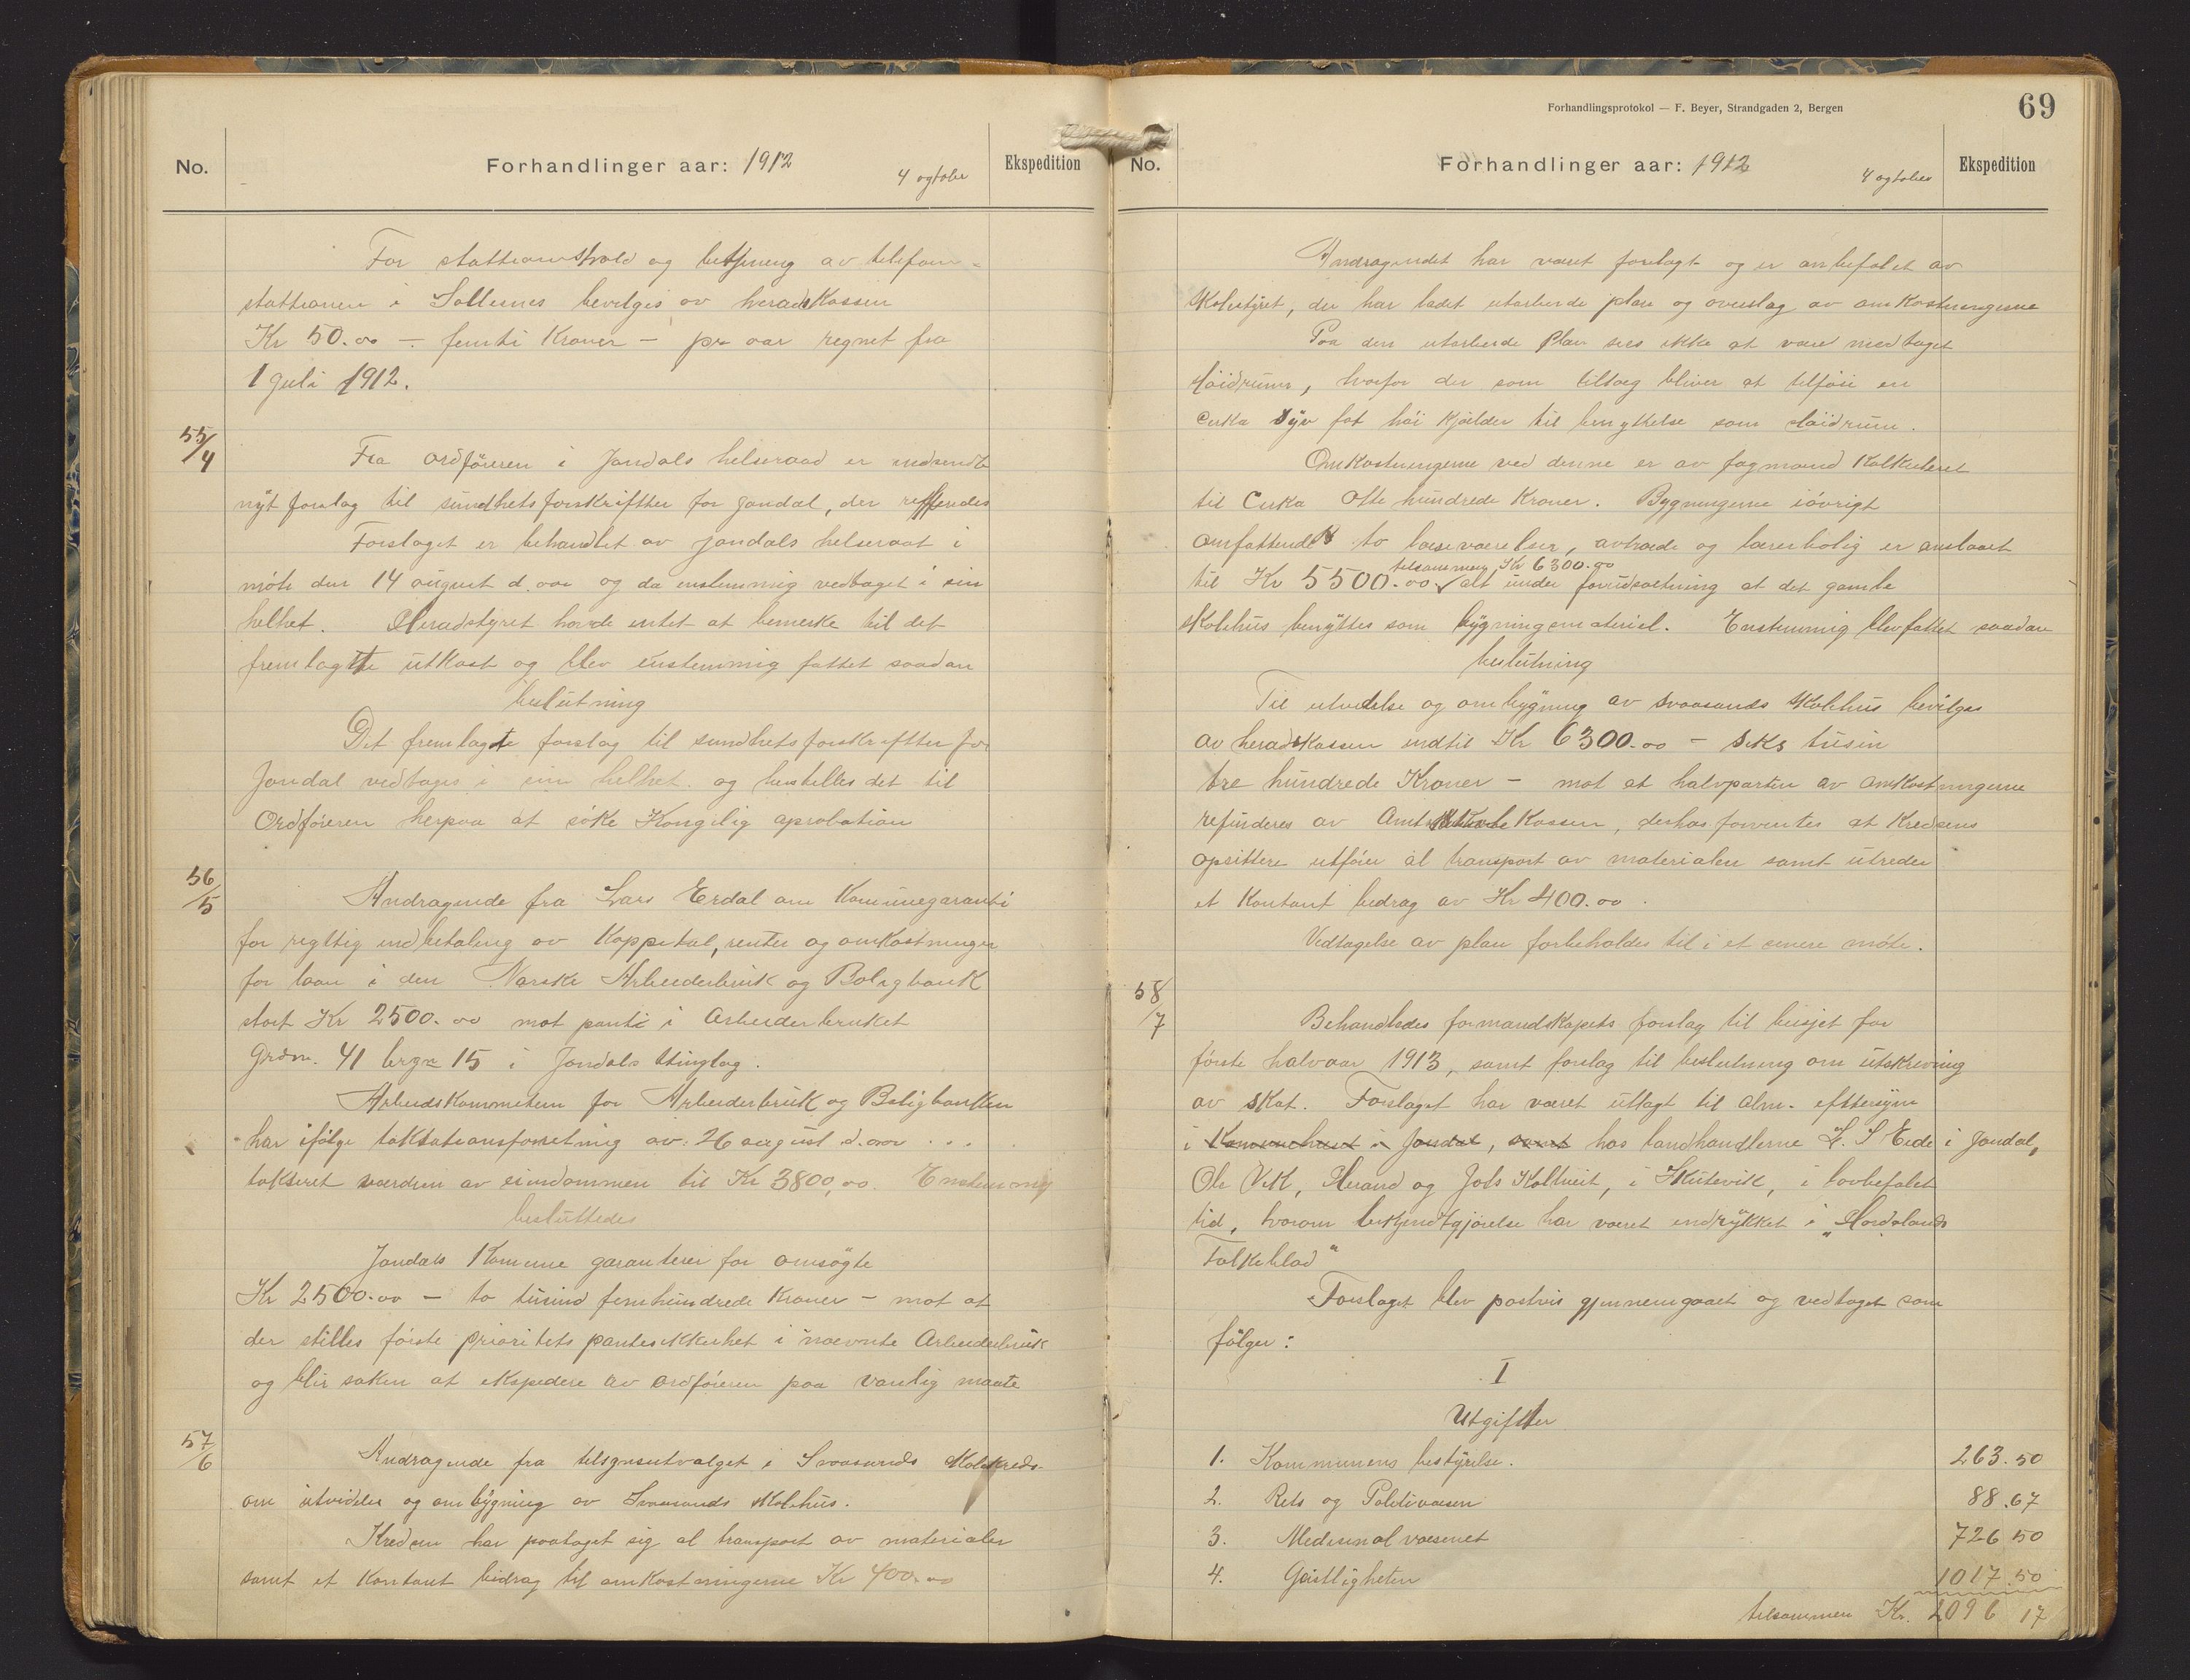 No. Forhandlinger aar: 1912 4 ogtober Ekspedition
For stattionshold og betjening av telefon-
stattionen i Sollesnes bevilges av heradskassen
Kr 50.00 – femti Kroner – pr aar regnet fra
1 juli 1912.
55/4
Fra ordføreren i Jondals helseraad er indsendt
nyt forslag til sundhetsforskriftter for Jondal, der
Forslaget er behandlet av Jondals helseraat i
møte den 14 august d. aar og da enstemmig vedtaget i sin
helhet. Heradstyret havde intet at bemerke til det
fremlagtte utkast og blev enstemmig fattet saadan
beslutning
Det fremlagte forslag til sundhetsforskriftter for
Jondal vedtages i sin helhet og henstilles det til
Ordføreren herpaa at søke Kongelig aprobation
56/5
Andragende fra Lars Erdal om Kommunegaranti
for rigttig indbetaling av Kappital, renter og omkostninger
for laan i den Norske Arbeiderbruk og Boligbank
stort Kr 2500.00 mot panti i Arbeiderbruket
Grdn. 41 brgn 15 i Jondals ttinglag.
Arbeidskommeteen for Arbeiderbruk og Boligbanken
har ifølge takstationsforretning av 26 august d. aar ...
takseret værdien av eiendommen til Kr 3800,00. Enstemmig
besluttedes
Jondals Komune garanterer for omsøgte
Kr 2500.00 – to tusind femhundrede Kroner – mot at
der stilles første prioritets pantesikkerhet i nævnte Arbeiderbruk
og blir saken at ekspedere av ordføreren paa vanlig maate
57/6
Andragende fra tilsynsutvalget i Svaasands skolekreds
om utvidelse og ombygning av Svaasands skolehus.
Kredsen har paataget sig al transport av materialer
samt et kontant bidrag til omkostningerne Kr 400.00
Forhandlingsprotokol — F. Beyer, Strandgaden 2, Bergen
69
No. Forhandlinger aar: 1912 4 ogtober Ekspedition
Andragendet har været forelagt og er anbefalet av
skolestyret, der har ladet utarbeide plan og overslag av omkostningerne
Paa den utarbeide plan sees ikke at være medtaget
sløidrum, hvorfor der som tillæg bliver at tilføie en
cirka syv fot høi kjælder til benyttelse som sløidrum.
Omkostningerne ved denne er av fagmand kalkuleret
til Cirka otte hundrede Kroner. Bygningerne iøvrigt
omfattende to læseværelser, avtræde og lærerbolig er anslaaet
tilsammen Kr 6300.00
til Kr 5500.00 alt under forudsætning at det gamle
skolehus benyttes som bygningsmateriel. Enstemmig blev fattet saadan
beslutning
Til utvidelse og ombygning av Svaasands skolehus bevilges
av heradskassen indtil Kr 6300.00 – seks tusin
tre hundrede Kroner – mot at halvparten av omkostningerne
refunderes av Amtskolekassen, derhos forventes at Kredsens
opsittere utfører al transport av materialer samt utreder
et Kontant bedrag av Kr 400.00.
Vedtagelse av plan forbeholdes til i et senere møte.
58/7
Behandledes formandskapets forslag til busjet for
første halvaar 1913, samt forslag til beslutning om utskrivning
av skat. Forslaget har været utlagt til alm. eftersyn
i Komunehuset i Jondal, samt hos landhandlerne L. S Eide i Jondal,
Ole Vik, Herand og Jols Koltveit, i Skutevik, i lovbefalet
tid, hvorom bekjendtgjørelse har været indrykket i „Hordalands
Folkeblad“
Forslaget blev postvis gjennemgaaet og vedtaget som
følger:
I
Utgiftter
1. Kommunens bestyrelse. 263.50
2. Rets og Politivæsen 88.67
3. Medisinalvæsenet 726 50
4. Geistligheten 1017.50
tilsammen Kr. 2096 17